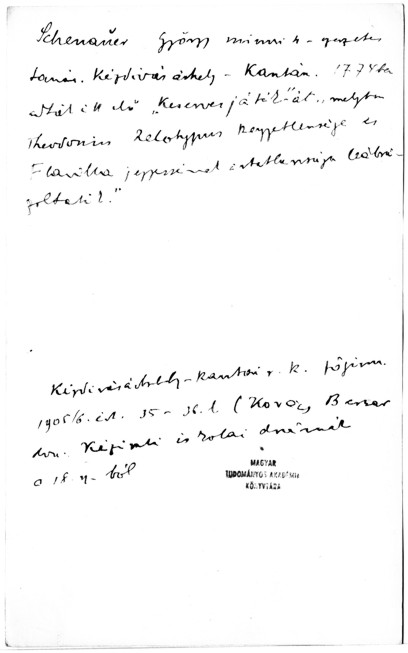 Schenauer György minori h-gezetes
tanár. Kézdivásárhely - Kantán. 1774ben
adták itt elő „Keserves játék"-át, melyben
Theodosius Zelotypus kegyetlensége és
Flavilla jegyesének ártatlansága lábrá-
zoltatik."
Kézdivásárhely-kantai r. k. főgimn.
1905/6. ért. 35-36. l. (Kovács Bernar
din. Kézdi iskolai drámák
a 18. sz-ból
MAGYAR
TUDOMÁNYOS AKADÉMIA
KÖNYVTÁRA